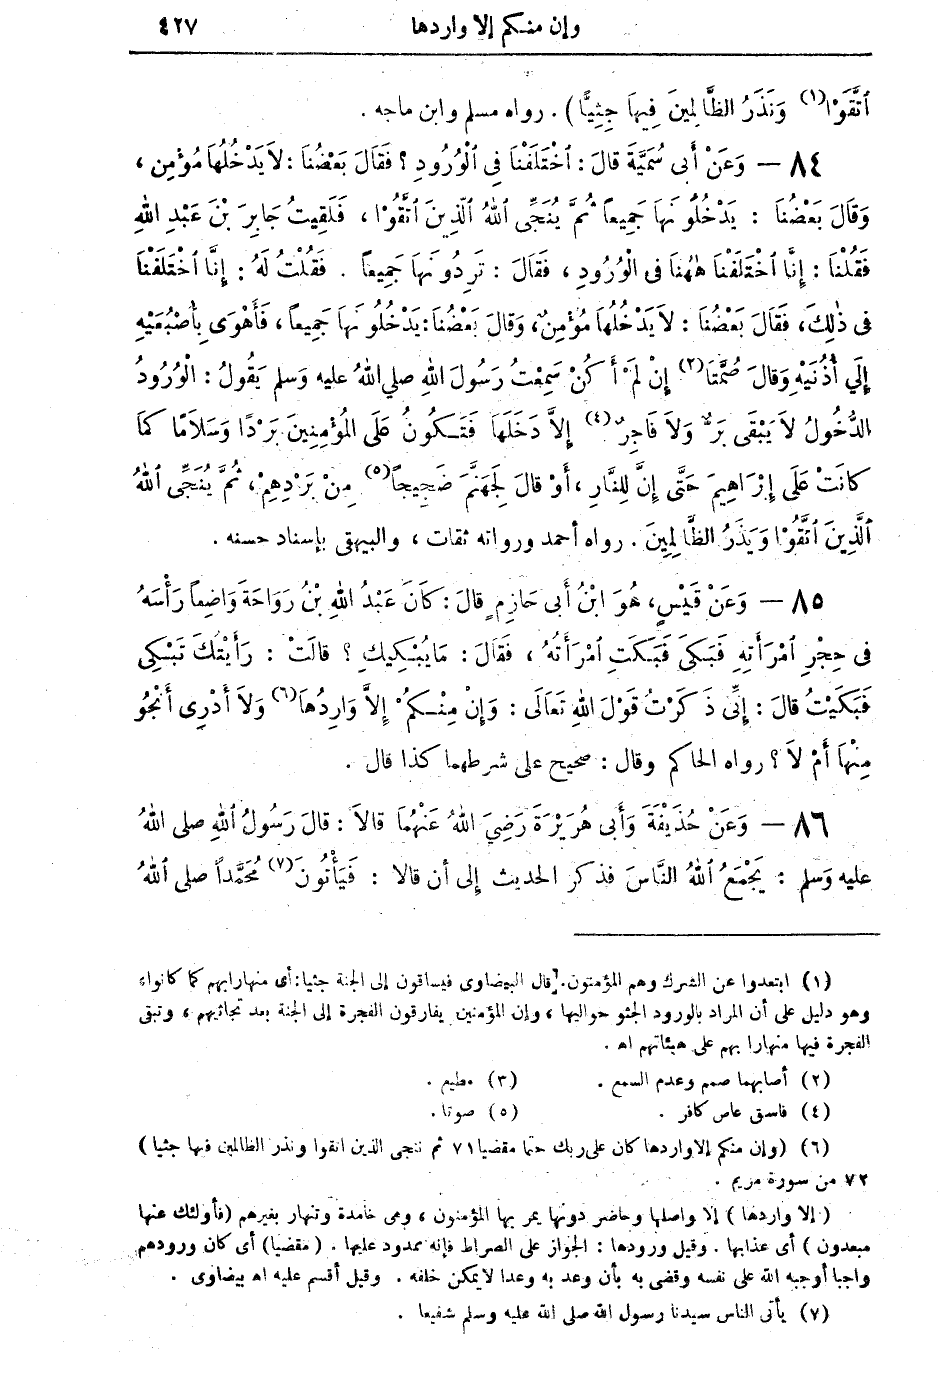 وإن منكم إلا واردها ٤٢٧
ٱتَّقَوْا(١) وَنَذَرُ الظَّالِمِينَ فِيهَا جِثِيًّا) . رواه مسلم وابن ماجه .
٨٤ – وَعَنْ أَبِى سُمَيَّةَ قالَ : ٱخْتَلَفْنَا فِى الْوُرُودِ ؟ فَقَالَ بَعْضُنَا : لاَ يَدْخُلُهَا مُؤْمِن ،
وَقَالَ بَعْضُنَا : يَدْخُلُونَهَا جَمِيعاً ثُمَّ يُنَجِّى اللهُ الَّذِينَ ٱتَّقُوْا ، فَلَقِيتُ جَابِرَ بْنَ عَبْدِ اللهِ
فَقُلْنَا : إِنَّا ٱخْتَلَفْنَا هٰهُنَا فِى الْوُرُودِ ، فَقَالَ : تَرِدُونَهَا جَمِيعاً . فَقُلْتُ لَهُ : إِنَّا ٱخْتَلَفْنَا
فِى ذٰلِكَ، فَقَالَ بَعْضُنَا : لاَ يَدْخُلُهَا مُؤْمِنٌ، وَقَالَ بَعْضُنَا: يَدْخُلُونَهَا جَمِيعاً، فَأَهْوَى بِأُصْبُعَيْهِ
إِلَي أُذُنَيْهِ وَقَالَ صُمَّتَا(٢) إِنْ لَمْ أَكُنْ سَمِعْتُ رَسُولَ اللهِ صلي اللهُ عليه وَسلم يَقُولُ : الْوُرُودُ
الدُّخُولُ لاَ يَبْقَى بَرٌّ وَلاَ فَاجِرٌ(٤) إِلاَّ دَخَلَهَا فَتَكُونُ عَلَى الْمُؤْمِنِينَ بَرْدًا وَسَلاَمًا كَمَا
كانَتْ عَلَى إِبْرَاهِيمَ حَتَّى إِنَّ لِلنَّارِ ، أَوْ قالَ لِجَهَنَّمَ ضَجِيجاً(٥) مِنْ بَرْدِهِمْ، ثُمَّ يُنَجِّى ٱللهُ
ٱلَّذِينَ ٱتَّقُوْا وَيَذَرُ الظَّالِمِينَ . رواه أحمد ورواته ثقات ، والبيهقى بإسناد حسنه .
٨٥ – وَعَنْ قَيْسٍ، هُوَ ابْنُ أَبِى حَازِمٍ قالَ : كَانَ عَبْدُ اللهِ بْنُ رَوَاحَةَ وَاضِعاً رَأْسَهُ
فِى حِجْرِ ٱمْرَأَتِهِ فَبَكَى فَبَكَتِ ٱمْرَأَتُهُ ، فَقَالَ : مَا يُبْكِيكِ ؟ قالَتْ : رَأَيْتُكَ تَبْكِى
فَبَكَيْتُ قالَ : إِنِّى ذَكَرْتُ قَوْلَ اللهِ تَعَالَى : وَإِنْ مِنْكُمْ إِلاَّ وَارِدُهَا(٦) وَلاَ أَدْرِى أَنْجُو
مِنْهَا أَمْ لاَ ؟ رواه الحاكم وقال : صحيح على شرطهما كذا قال .
٨٦ – وَعَنْ حُذَيْفَةَ وَأَبِى هُرَيْرَةَ رَضِيَ اللهُ عَنْهُمَا قالاَ : قالَ رَسُولُ اللهِ صلى اللهُ
عليه وَسلم : يَجْمَعُ اللهُ النَّاسَ فذكر الحديث إلى أن قالا : فَيَأْتُونَ(٧) مُحَمَّداً صلى ٱللهُ
(١) ابتعدوا عن الشرك وهم المؤمنون. قال البيضاوى فيساقون إلى الجنة جثيا: أى منهارا بهم كما كانواء
وهو دليل على أن المراد بالورود الجثو حواليها ، وإن المؤمنين يفارقون الفجرة إلى الجنة بعد تجاثيهم ، وتبقى
الفجرة فيها منهارا بهم على هيئاتهم اه .
(٢) أصابهما صمم وعدم السمع . (٣) مطيع .
(٤) فاسق عاص كافر . (٥) صوتا .
(٦) (وإن منكم إلا واردها كان على ربك حتما مقضيا ٧١ ثم ننجى الذين اتقوا ونذر الظالمين فيها جثيا)
٧٢ من سورة مريم .
( إلا واردها ) إلا واصلها وحاضر دونها يمر بها المؤمنون ، وهى خامدة وتنهار بغيرهم (فأولئك عنها
مبعدون ) أى عذابها . وقيل ورودها : الجواز على الصراط فإنه ممدود عليها . (مقضيا) أى كان ورودهم
واجبا أوجبه الله على نفسه وقضى به بأن وعد به وعدا لا يمكن خلفه . وقيل أقسم عليه اه بيضاوى .
(٧) يأتى الناس سيدنا رسول الله صلى الله عليه وسلم شفيعا .